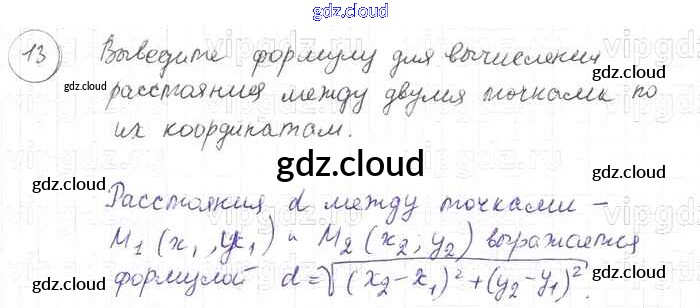 gdz.cloud
13 Выведите формулу для вычисления
расстояния между двумя точками по
их координатам.
gdz.cloud
gdz.cloud
gdz.cloud
gdz.cloud
Расстояния d между точками –
M₁(x₁, y₁) и M₂(x₂; y₂) выражается
формулой d=√(x₂-x₁)²+(y₂-y₁)².
gdz.cloud
gdz.cloud
gdz.cloud